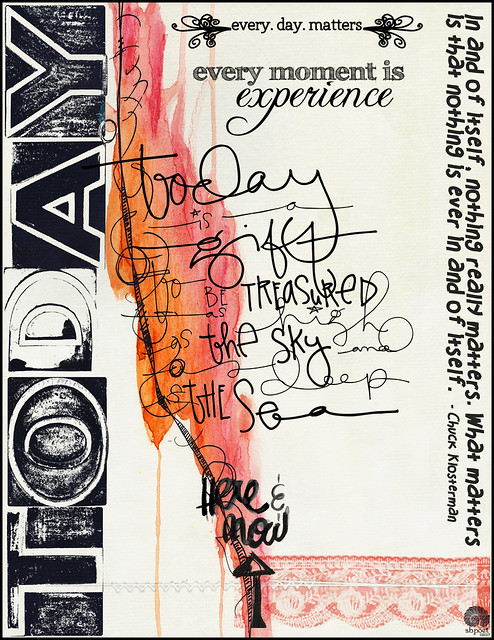 TODAY
every. day. matters.
every moment is
experience
today
is a
gift
to BE TREASURED
as high
as the sky and
as deep
as THE Sea
Here &
now
In and of itself, nothing really matters. What matters
is that nothing is ever in and of itself. - Chuck Klosterman
sbpoet